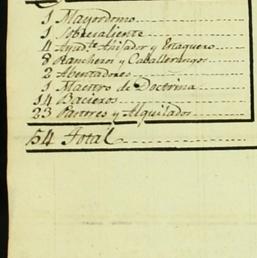 1 Mayordomo
1 Sobresaliente
4 Ayud.te Ahilador y Ertaquero
8 Rancheros y Caballerangos
2 Aventadores
1 Maestro de Doctrina
14 Bacieros
23 Pastores y Alquilados
54 Total